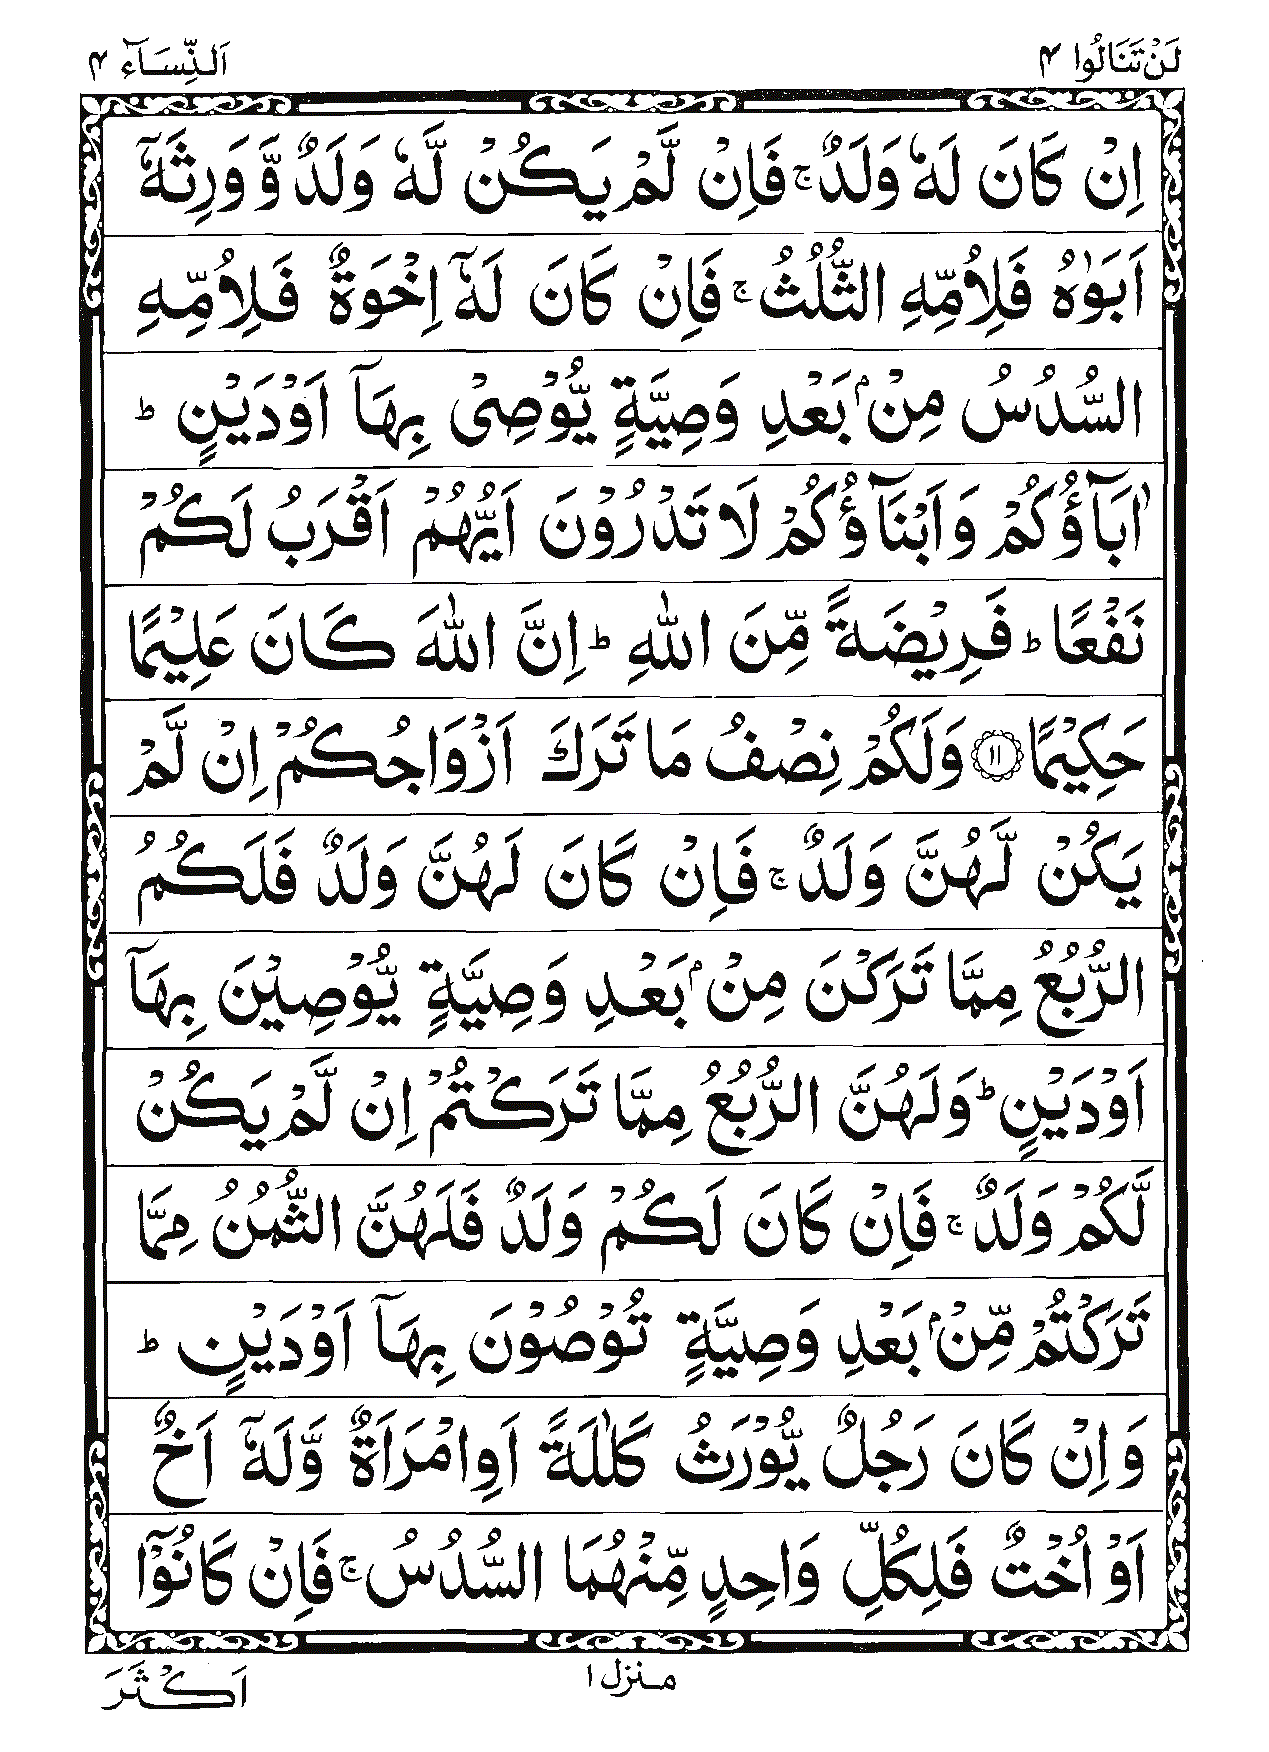 لَنْ تَنَالُوا ۴
اَلنِّسَآء ۴
اِنْ كَانَ لَهٗ وَلَدٌ ۚ فَاِنْ لَّمْ يَكُنْ لَّهٗ وَلَدٌ وَّ وَرِثَهٗۤ
اَبَوٰهُ فَلِاُمِّهِ الثُّلُثُ ۚ فَاِنْ كَانَ لَهٗۤ اِخْوَةٌ فَلِاُمِّهِ
السُّدُسُ مِنْۢ بَعْدِ وَصِيَّةٍ يُّوْصِىْ بِهَاۤ اَوْ دَيْنٍ ؕ
اٰبَآؤُكُمْ وَاَبْنَآؤُكُمْ لَا تَدْرُوْنَ اَيُّهُمْ اَقْرَبُ لَكُمْ
نَفْعًا ؕ فَرِيْضَةً مِّنَ اللّٰهِ ؕ اِنَّ اللّٰهَ كَانَ عَلِيْمًا
حَكِيْمًا ۝۱۱ وَلَكُمْ نِصْفُ مَا تَرَكَ اَزْوَاجُكُمْ اِنْ لَّمْ
يَكُنْ لَّهُنَّ وَلَدٌ ۚ فَاِنْ كَانَ لَهُنَّ وَلَدٌ فَلَكُمُ
الرُّبُعُ مِمَّا تَرَكْنَ مِنْۢ بَعْدِ وَصِيَّةٍ يُّوْصِيْنَ بِهَاۤ
اَوْ دَيْنٍ ؕ وَلَهُنَّ الرُّبُعُ مِمَّا تَرَكْتُمْ اِنْ لَّمْ يَكُنْ
لَّكُمْ وَلَدٌ ۚ فَاِنْ كَانَ لَكُمْ وَلَدٌ فَلَهُنَّ الثُّمُنُ مِمَّا
تَرَكْتُمْ مِّنْۢ بَعْدِ وَصِيَّةٍ تُوْصُوْنَ بِهَاۤ اَوْ دَيْنٍ ؕ
وَاِنْ كَانَ رَجُلٌ يُّوْرَثُ كَلٰلَةً اَوِ امْرَاَةٌ وَّلَهٗۤ اَخٌ
اَوْ اُخْتٌ فَلِكُلِّ وَاحِدٍ مِّنْهُمَا السُّدُسُ ۚ فَاِنْ كَانُوْۤا
منزل ۱
اَكْثَرَ